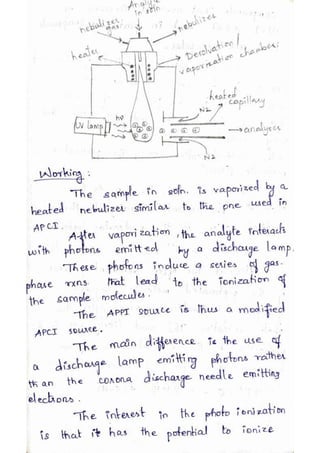 Analyte
in soln
nebulizer
gas
nebulizer
heater
Desolvation/
vaporization chamber
heated
capillary
N2
hν
UV lamp
→analyzer
N2
Working:
The sample in soln. is vaporized by a
heated nebulizer similar to the one used in
APCI.
After vaporization, the analyte interacts
with photons emitted by a discharge lamp.
These photons induce a series of gas-
phase rxns that lead to the ionization of
the sample molecules.
The APPI source is thus a modified
APCI source.
The main difference is the use of
a discharge lamp emitting photons rather
than the corona discharge needle emitting
electrons.
The interest in the photo ionization
is that it has the potential to ionize